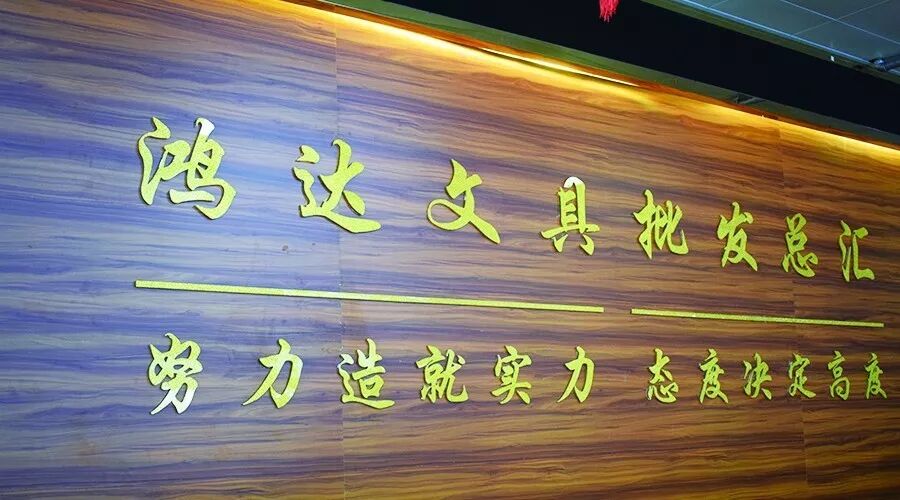 鸿达文具批发总汇
努力造就实力 态度决定高度